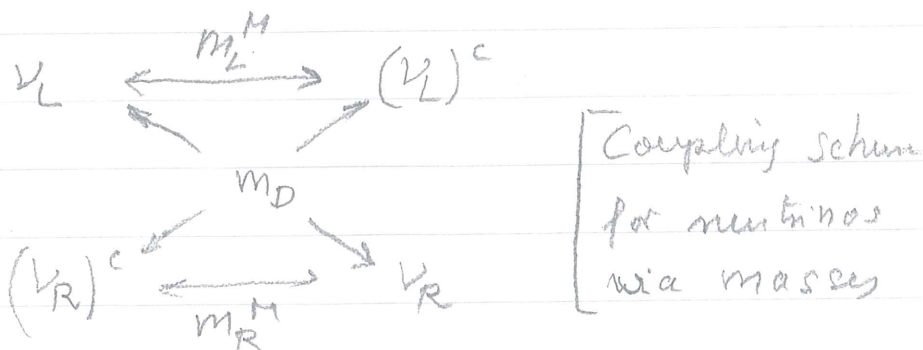 m_L^M
ν_L (ν_L)^c
m_D
(ν_R)^c ν_R
m_R^M
Coupling schem
for neutrinos
via masses